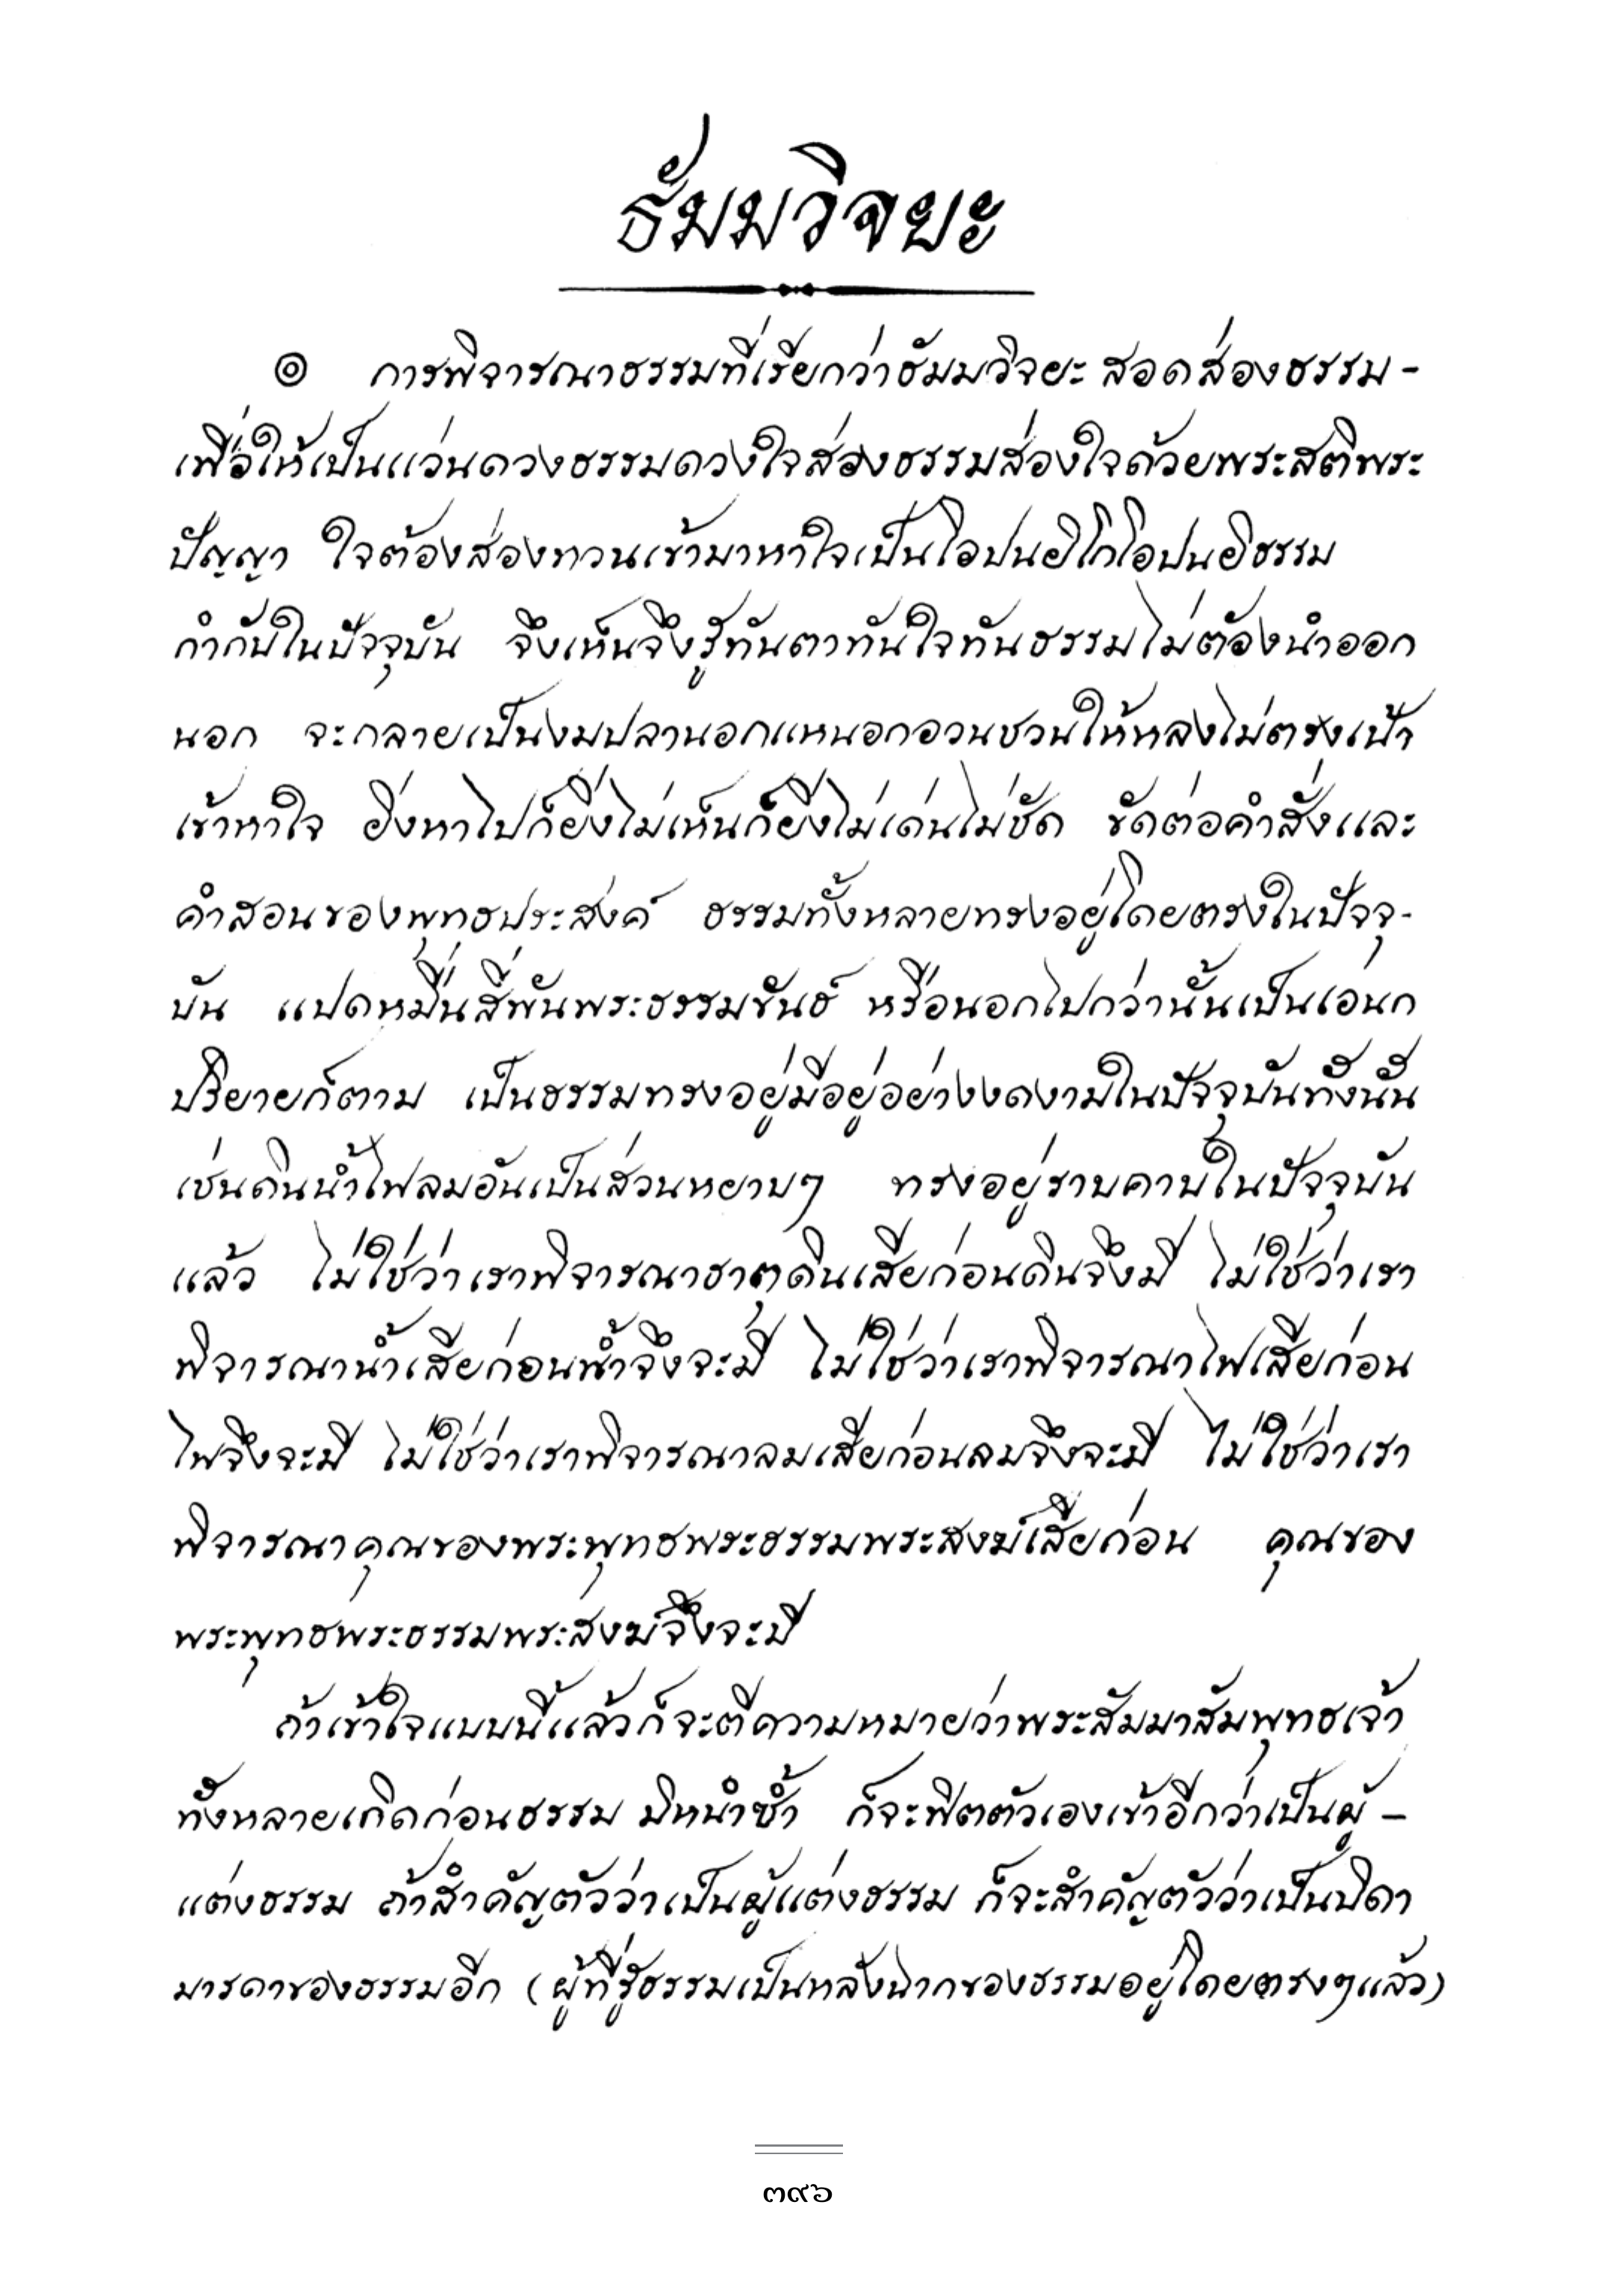 ธัมมวิจยะ
๏ การพิจารณาธรรมที่เรียกว่าธัมมวิจยะ สอดส่องธรรม -
เพื่อให้เป็นแว่นดวงธรรมดวงใจส่องธรรมส่องใจด้วยพระสติพระ
ปัญญา ใจต้องส่องทวนเข้ามาหาใจเป็นโอปนยิโกโอปนยิธรรม
กำกับในปัจจุบัน จึงเห็นจึงรู้ทันตาทันใจทันธรรมไม่ต้องนำออก
นอก จะกลายเป็นงมปลานอกแหนอกอวนชวนให้หลงไม่ตรงเป้า
เข้าหาใจ ยิ่งหาไปก็ยิ่งไม่เห็นก็ยิ่งไม่เด่นไม่ชัด ขัดต่อคำสั่งและ
คำสอนของพุทธประสงค์ ธรรมทั้งหลายทรงอยู่โดยตรงในปัจจุ-
บัน แปดหมื่นสี่พันพระธรรมขันธ์ หรือนอกไปกว่านั้นเป็นเอนก
ปริยายก็ตาม เป็นธรรมทรงอยู่มีอยู่อย่างงดงามในปัจจุบันทั้งนั้น
เช่นดินน้ำไฟลมอันเป็นส่วนหยาบๆ ทรงอยู่ราบคาบในปัจจุบัน
แล้ว ไม่ใช่ว่าเราพิจารณาธาตุดินเสียก่อนดินจึงมี ไม่ใช่ว่าเรา
พิจารณาน้ำเสียก่อนน้ำจึงจะมี ไม่ใช่ว่าเราพิจารณาไฟเสียก่อน
ไฟจึงจะมี ไม่ใช่ว่าเราพิจารณาลมเสียก่อนลมจึงจะมี ไม่ใช่ว่าเรา
พิจารณาคุณของพระพุทธพระธรรมพระสงฆ์เสียก่อน คุณของ
พระพุทธพระธรรมพระสงฆ์จึงจะมี
ถ้าเข้าใจแบบนี้แล้วก็จะตีความหมายว่าพระสัมมาสัมพุทธเจ้า
ทั้งหลายเกิดก่อนธรรม มิหนำซ้ำ ก็จะฟิตตัวเองเข้าอีกว่าเป็นผู้ -
แต่งธรรม ถ้าสำคัญตัวว่าเป็นผู้แต่งธรรม ก็จะสำคัญตัวว่าเป็นบิดา
มารดาของธรรมอีก (ผู้ที่รู้ธรรมเป็นหลังฉากของธรรมอยู่โดยตรงๆแล้ว)
๓๙๖